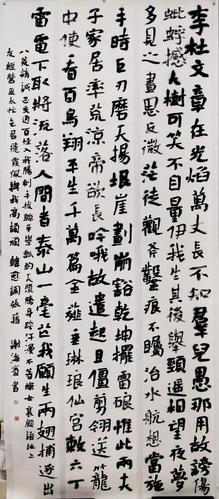 李杜文章在光焰萬丈長不知羣兒愚那用故謗傷
蚍蜉撼大樹可笑不自量伊我生其後舉頸遥相望夜夢
多見之晝思反微茫徒觀斧鑿痕不矚治水航想當施
手時巨刃磨天揚垠崖劃崩豁乾坤擺雷硠惟此兩夫
子家居率荒涼帝欲長吟哦故遣起且僵剪翎送籠
中使看百鳥翔平生千萬篇金薤垂琳琅仙官敕六丁
雷電下取將流落人間者泰山一毫芒我願生兩翅捕逐出
八荒精誠忽交通百怪入我腸刺手拔鯨牙舉瓢酌天漿騰身跨汗漫不著織女襄顧語地上
友經營無太忙乞君飛霞佩與我高頡頏 韓愈調張籍 謝海書